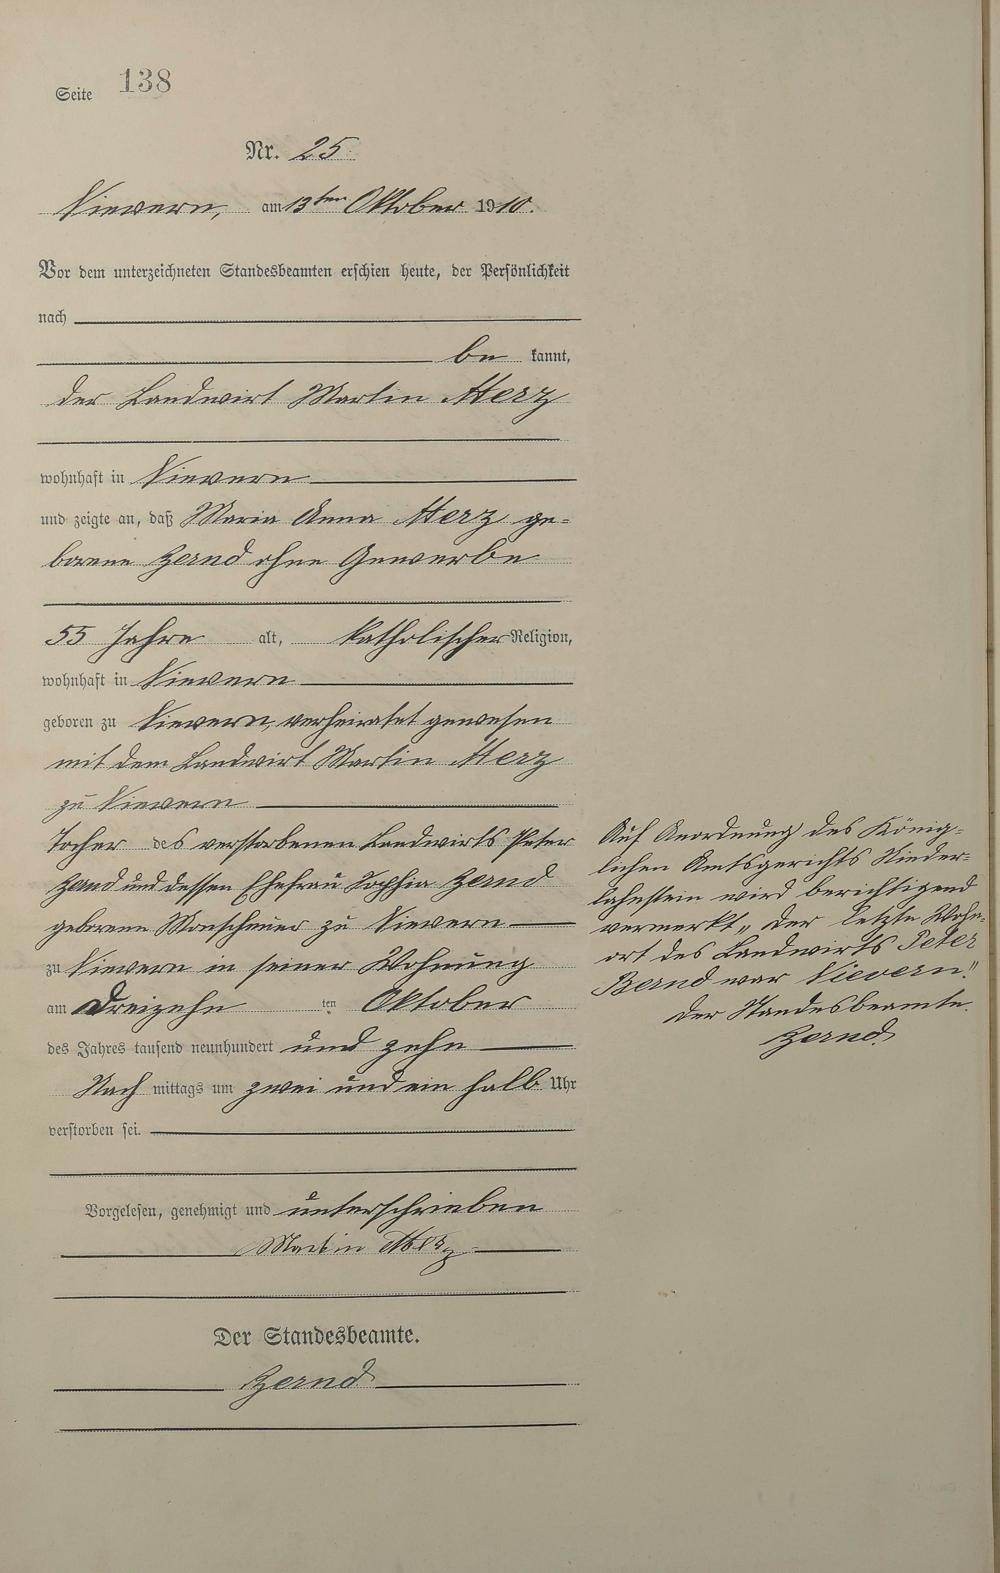 Seite 138
Nr. 25.
Nievern, am 13ten Oktober 1910.
Vor dem unterzeichneten Standesbeamten erschien heute, der Persönlichkeit
nach
be kannt,
der Landwirt Martin Herz
wohnhaft in Nievern
und zeigte an, daß Maria Anna Herz ge=
borene Zernd ohne Gewerbe
55 Jahre alt, katholischer Religion,
wohnhaft in Nievern
geboren zu Nievern, verheiratet gewesen
mit dem Landwirt Martin Herz
zu Nievern
Tocher des verstorbenen Landwirts Peter
Zernd und dessen Ehefrau Sophia Zernd
geborene Monschauer zu Nievern
zu Nievern in seiner Wohnung
am Dreizehn ten Oktober
des Jahres tausend neunhundert und zehn
Nach mittags um zwei und ein halb Uhr
verstorben sei.
Vorgelesen, genehmigt und unterschrieben
Martin Herz
Der Standesbeamte.
Zernd
Auf Anordnung des König=
lichen Amtsgerichts Nieder=
lahnstein wird berichtigend
vermerkt, „der letzte Wohn=
ort des Landwirts Peter
Bernd war Nievern."
Der Standesbeamte.
Zernd.